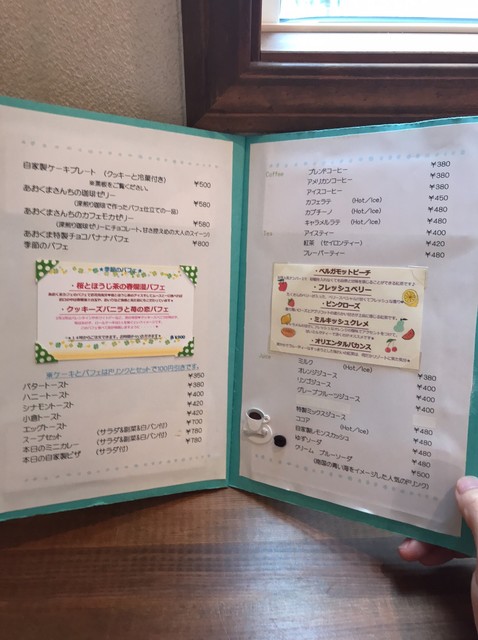 自家製ケーキプレート (クッキーと冷菓付き) ¥500
※黒板をご覧ください。
あおくまさんちの珈琲ゼリー ¥580
(深煎り珈琲で作ったパフェ仕立ての一品)
あおくまさんちのカフェモカゼリー ¥580
(深煎り珈琲ゼリーにチョコレート、甘さ控えめの大人のスイーツ)
あおくま特製チョコバナナパフェ ¥800
季節のパフェ
季節のパフェ
・桜とほうじ茶の春爛漫パフェ
・クッキーズバニラと苺の恋パフェ
※ケーキとパフェはドリンクとセットで100円引きです。
バタートースト ¥350
ハニートースト ¥380
シナモントースト ¥400
小倉トースト ¥420
エッグトースト ¥420
スープセット (サラダ&副菜&白パン付) ¥700
本日のミニカレー (サラダ&副菜&白パン付) ¥780
本日の自家製ピザ (サラダ付) ¥780
Coffee
ブレンドコーヒー ¥380
アメリカンコーヒー ¥380
アイスコーヒー ¥380
カフェラテ (Hot/Ice) ¥450
カプチーノ (Hot/Ice) ¥480
キャラメルラテ (Hot/Ice) ¥480
Tea
アイスティー ¥400
紅茶 (セイロンティー) ¥420
フレーバーティー ¥480
・ベルガモットピーチ
・フレッシュベリー
・ピンクローズ
・ミルキッシュグレメ
・オリエンタルバカンス
ミルク (Hot/Ice)
オレンジジュース ¥380
リンゴジュース ¥400
グレープフルーツジュース ¥400
¥400
特製ミックスジュース
ココア (Hot/Ice) ¥480
自家製レモンスカッシュ ¥480
ゆずソーダ ¥480
クリーム ブルーソーダ ¥480
¥500
(南国の青い海をイメージした人気のドリンク)